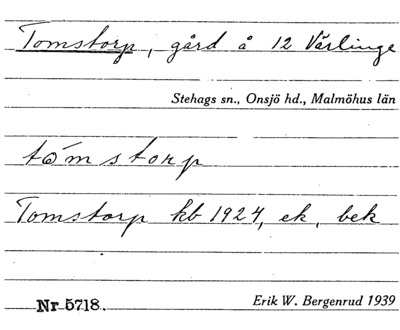 Tomstorp, gård å 12 Vårlinge
Stehags sn., Onsjö hd., Malmöhus län
tòmstorp
Tomstorp kb 1924, ek, bek
Nr 5718.
Erik W. Bergenrud 1939